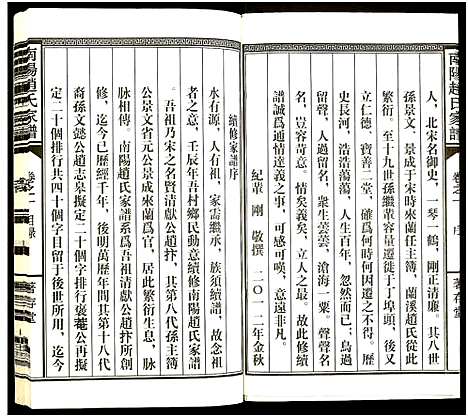 南陽趙氏家譜
卷之一 序
著存堂
人，北宋名御史，一琴一鶴，剛正清廉。其八世
孫，景文、景成于宋時來蘭任主簿，蘭溪趙氏從此
繁衍。至十九世孫繼軍發容量遷徙于丁埠頭，後又
立仁德、寶善二堂，雖為何時何因遷之不得。歷
史長河，浩浩蕩蕩，人生百年，忽即烏過，雁過
留聲，人過留名，衆生蕓蕓，滄海一粟。聲與
名，豈容苛意。情矣義矣，文之最上，故此修續
譜誠為通情達義之事，可感可嘆，意義非凡。
紀華剛 敬撰 二〇一二年金秋
續修家譜序
水有源，人有祖，家需繼承，族須續譜，故念祖
意，壬辰年吾村鄉民動意續修南陽趙氏家譜
一。吾祖乃宋之名賢清獻公趙抃，其第八代孫主簿
公景文省元公景成來蘭為官，居此繁衍生息，脉
脉相傳。南陽趙氏家譜系為吾祖清獻公趙抃所創
修，迄今已歷經千年，後明萬歷年間其第十八代
裔孫文懿公趙志皋擬定二十個排行裴菴公再擬
定二十個排行共四十個字目留于後世所用，迄今
南陽趙氏家譜
卷之一 目錄
著存堂